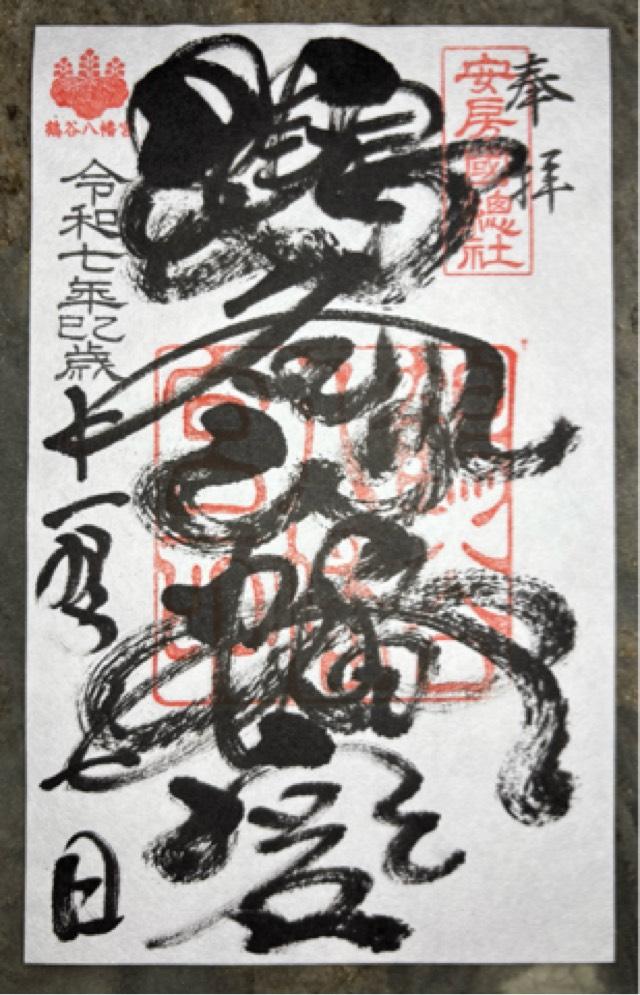 奉拝
安房國總社
鶴谷八幡宮
鶴谷八幡宮
令和七年乙巳歳十一月七日